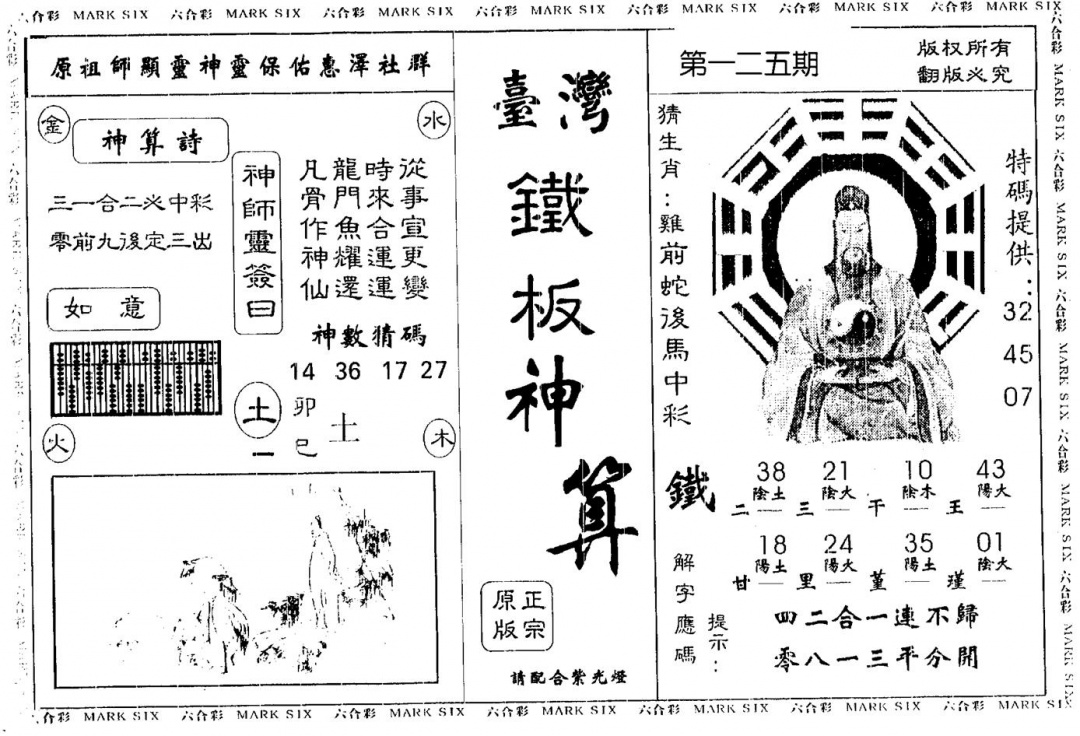 六合彩 MARK SIX 六合彩 MARK SIX 六合彩 MARK SIX 六合彩 MARK SIX 六合彩 MARK SIX 六合彩 MARK SIX 六合彩 MARK SIX
原祖師顯靈神靈保佑惠澤社群
金
水
神算詩
三一合二必中彩
零前九後定三出
如意
神師靈簽曰
從事宣更變
時來合運運
龍門魚耀還
凡骨作神仙
神數猜碼
14 36 17 27
土
一
卯
巳
土
火
木
臺灣
鐵板神算
正宗
原版
請配合紫光燈
第一二五期
版权所有
翻版必究
猜生肖：雞前蛇後馬中彩
特碼提供：
32
45
07
鐵
38 21 10 43
陰土 陰火 陰木 陽火
二 三 干 王
18 24 35 01
陽土 陽火 陽土 陰火
甘 里 堇 瑾
解字應碼
提示：
四二合一連不歸
零八一三平分開
六合彩 MARK SIX 六合彩 MARK SIX 六合彩 MARK SIX 六合彩 MARK SIX 六合彩 MARK SIX 六合彩 MARK SIX 六合彩 MARK SIX
六合彩 MARK SIX 六合彩 MARK SIX 六合彩 MARK SIX 六合彩 MARK SIX 六合彩 MARK SIX